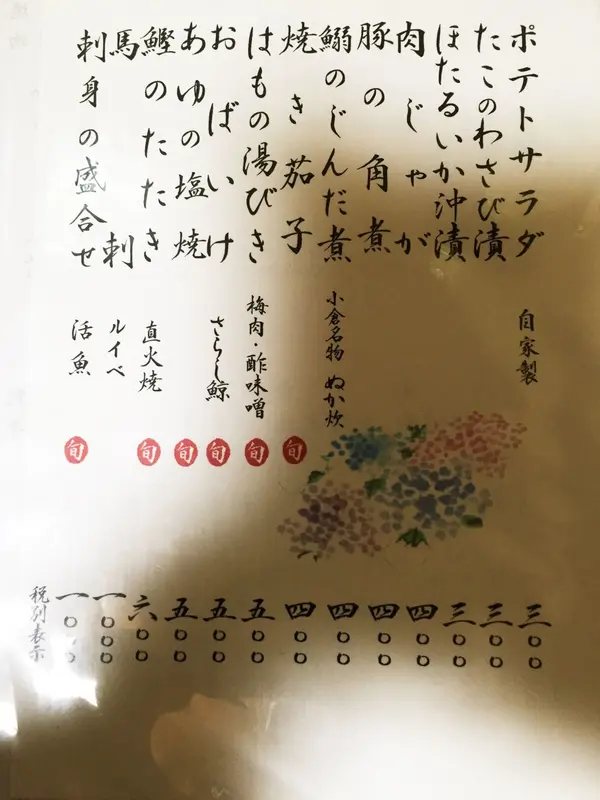 ポテトサラダ 自家製 三〇〇
たこのわさび漬 三〇〇
ほたるいか沖漬 三〇〇
肉じゃが 四〇〇
豚の角煮 四〇〇
鰯のじんだ煮 小倉名物 ぬか炊 四〇〇
焼き茄子 旬 四〇〇
はもの湯びき 梅肉・酢味噌 旬 五〇〇
おばいけ さらし鯨 旬 五〇〇
あゆの塩焼 旬 五〇〇
鰹のたたき 直火焼 旬 六〇〇
馬刺 ルイベ 一〇〇〇
刺身の盛合せ 活魚 旬 一〇〇〇
税別表示